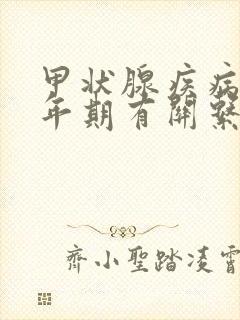 甲状腺疾病
年期有關繫
齊小聖踏凌霄